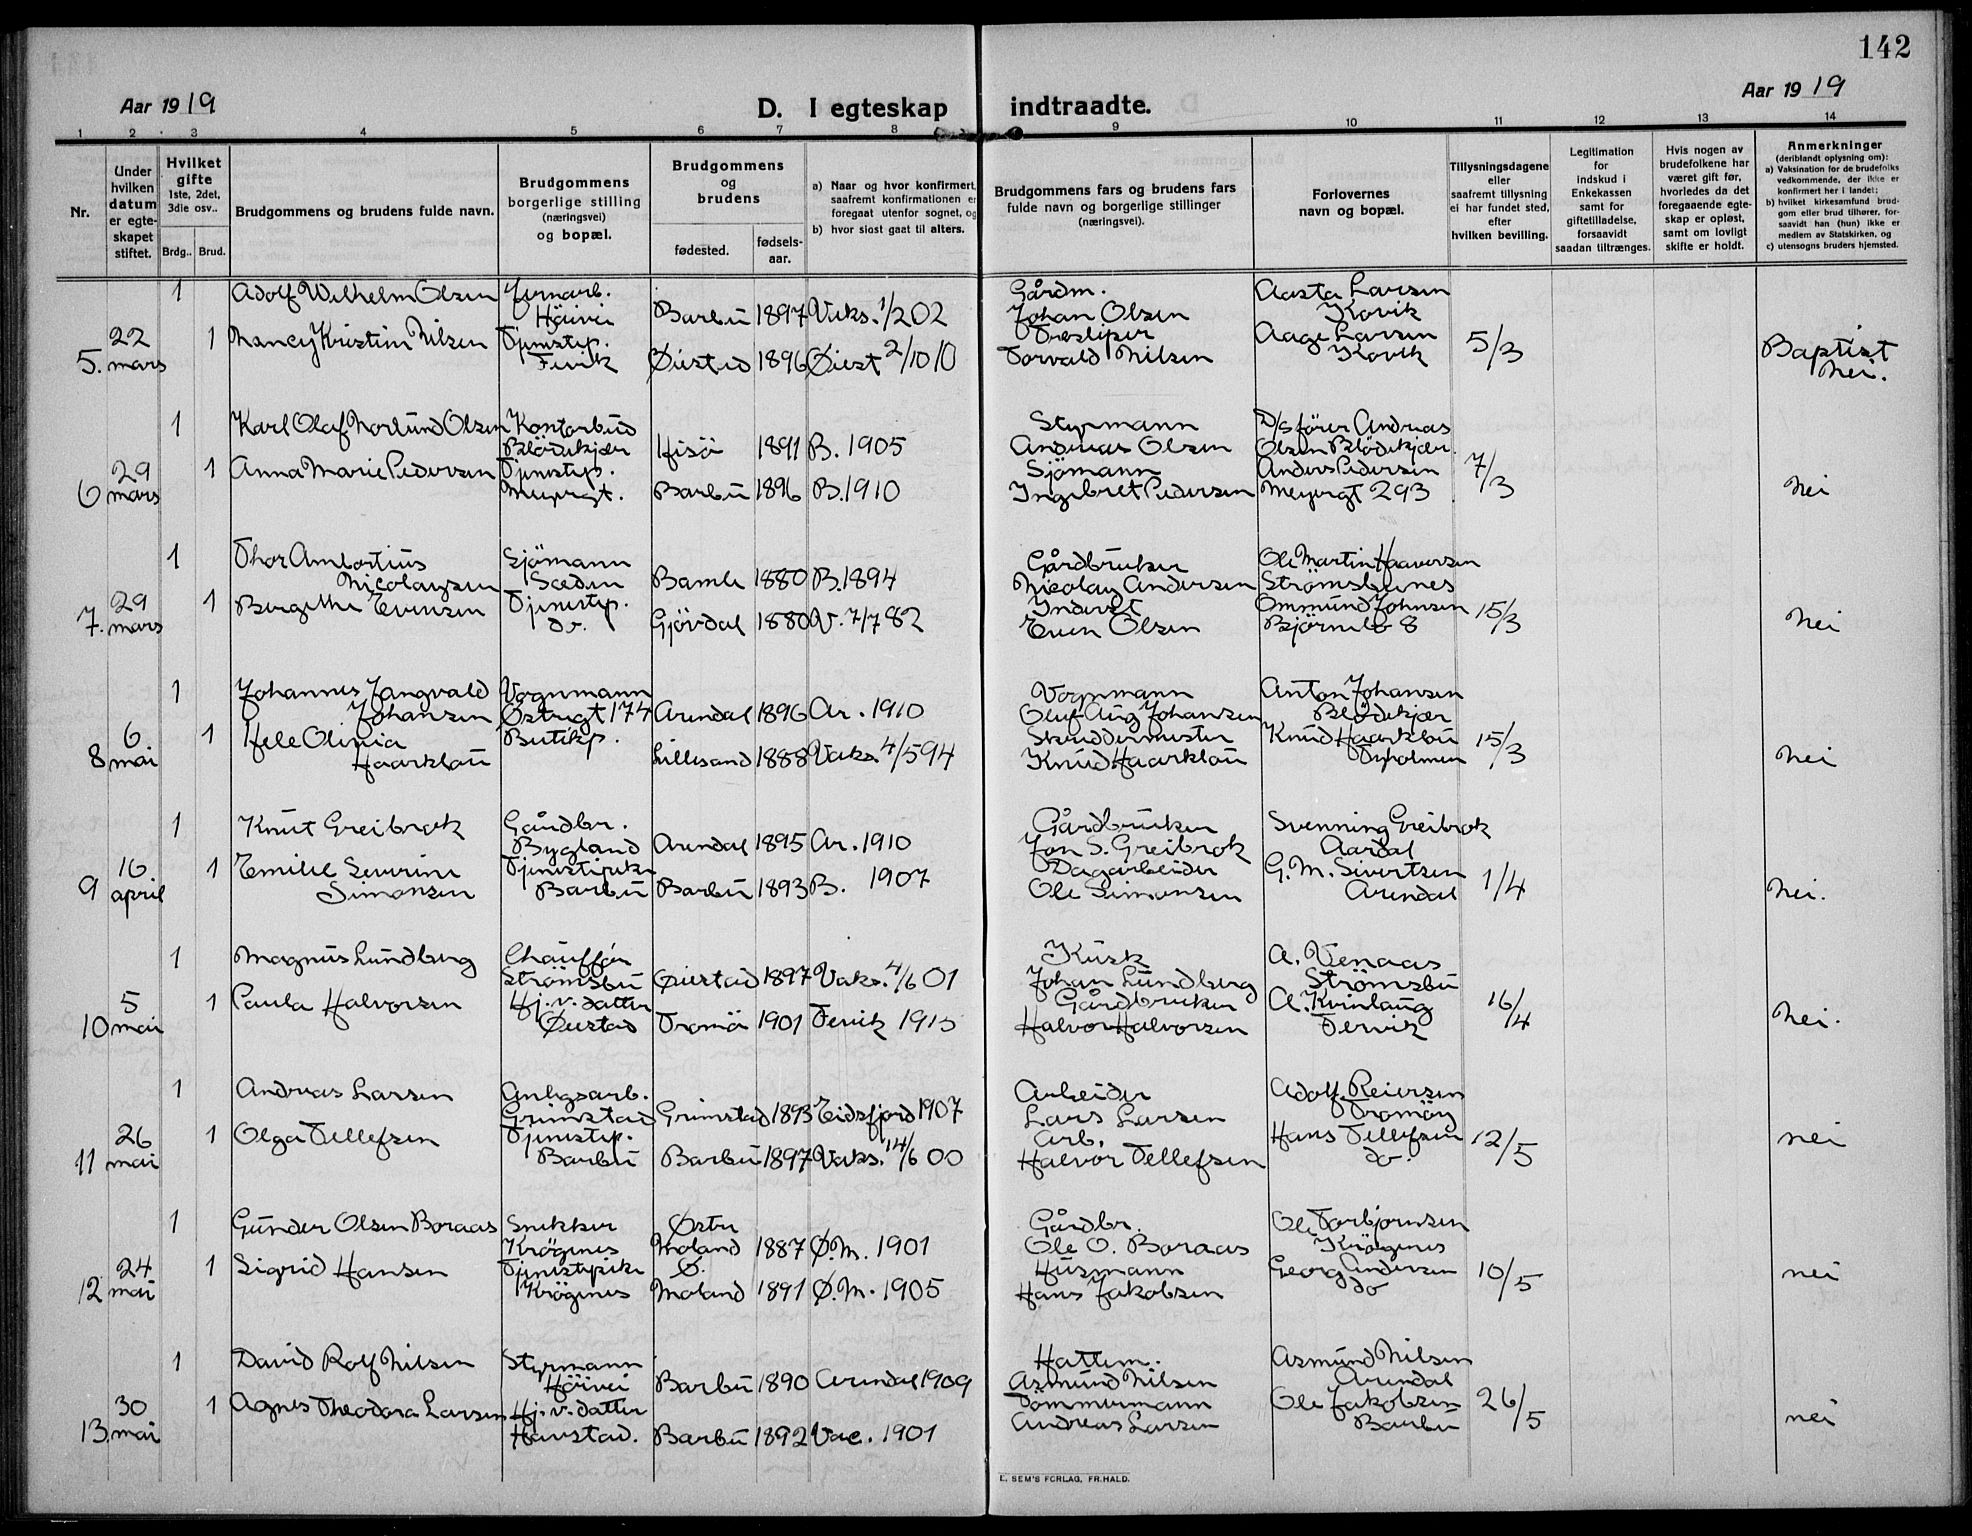 142
Aar 1919
D. I egteskap indtraadte.
Aar 1919
1 2 3 4 5 6 7 8 9 10 11 12 13 14
Nr.
Under
hvilken
datum
er egte-
skapet
stiftet.
Hvilket
gifte
1ste, 2det,
3die osv..
Brdg.. Brud.
Brudgommens og brudens fulde navn.
Brudgommens
borgerlige stilling
(næringsvei)
og bopæl.
Brudgommens
og
brudens
fødested.
fødsels-
aar.
a) Naar og hvor konfirmert,
saafremt konfirmationen er
foregaat utenfor sognet, og
b) hvor sidst gaat til alters.
Brudgommens fars og brudens fars
fulde navn og borgerlige stillinger
(næringsvei).
Forlovernes
navn og bopæl.
Tillysningsdagene
eller
saafremt tillysning
ei har fundet sted,
efter
hvilken bevilling.
Legitimation
for
indskud i
Enkekassen
samt for
giftetilladelse,
forsaavidt
saadan tiltrænges.
Hvis nogen av
brudefolkene har
været gift før,
hvorledes da det
foregaaende egte-
skap er opløst,
samt om lovligt
skifte er holdt.
Anmerkninger
(deriblandt oplysning om):
a) Vaksination for de brudefolks
vedkommende, der ikke er
konfirmert her i landet;
b) hvilket kirkesamfund brud-
gom eller brud tilhører, for-
saavidt han (hun) ikke er
medlem av Statskirken, og
c) utensogns bruders hjemsted.
1 Adolf Wilhelm Olsen Jernarb. Gårdm. Aasta Larsen
Höivei Barbu 1897 Vaks. 1/2 02 Johan Olsen Kovik
22 1 Nancy Kristin Nilsen Tjenestep. Tresliper Aage Larsen 5/3 Baptist
5. mars Fevik Øiestad 1896 Øiest 2/10 10 Torvald Nilsen Kovik Nei.
1 Karl Olaf Norlund Olsen Kontorbud Styrmann D/S förer Andreas
Blödekjær Hisö 1891 B. 1905 Andreas Olsen Olsen Blödekjær.
29 1 Anna Marie Pedersen Tjenestep. Sjömann Anders Pedersen 7/3
6 mars Meyergt. Barbu 1896 B. 1910 Ingebret Pedersen Meyergt 293 Nei
1 Thor Ambortius Sjömann Gårdbruker Ole Martin Haaversen
Nicolaysen Sæden Bamle 1880 B. 1894 Nicolay Andersen Strömsbunes
29 1 Bergithe Evensen Tjenestep. Inderst Ommund Johnsen 15/3
7. mars do. Gjövdal 1880 V. 7/7 82 Even Olsen Björnebo 8 Nei
1 Johannes Jangvald Vognmann Vognmann Anton Johansen
Johansen Østregt 174 Arendal 1896 Ar. 1910 Oluf Aug Johansen Blödekjær
6 1 Hele Olivia Butikp. Skreddermester Knud Haarklou 15/3
8 mai Haarklou Lillesand 1888 Vaks. 4/5 94 Knud Haarklou Tyholmen Nei
1 Knut Greibrok Gårdbr. Gårdbruker Svenning Greibrok
Bygland Arendal 1895 Ar. 1910 Jon S. Greibrok Aardal
16 1 Emilie Severine Tjenestepike Dagarbeider G. M. Sivertsen 1/4
9 april Simonsen Barbu Barbu 1893 B. 1907 Ole Simonsen Arendal Nei.
1 Magnus Lundberg Chauffør Kusk A. Venaas
Strömsbu Øiestad 1897 Vaks. 4/6 01 Johan Lundberg Strömsbu
5 1 Paula Halvorsen Hj. v. datter Gårdbruker A. Kvinlaug 16/4
10 mai Øiestad Tromö 1901 Fevik 1915 Halvor Halvorsen Fervik Nei.
1 Andreas Larsen Anlegsarb. Arbeider Adolf Reiersen
Grimstad Grimstad 1893 Eidsfjord 1907 Lars Larsen Tromöy
26 1 Olga Tellefsen Tjenestep. Arb. Hans Tellefsen 12/5 nei
11 mai Barbu Barbu 1897 Vaks. 14/6 00 Halvor Tellefsen do.
1 Gunder Olsen Boraas Snekker Østre Gårdbr. Ole Torbjornsen
Krögenes Moland 1887 Ø.M. 1901 Ole O. Boraas Krögenes
24 1 Sigrid Hansen Tjenestepike Ø. Husmann Georg Andersen 10/5 nei
12 mai Krögenes Moland 1891 Ø.M. 1905 Hans Jakobsen do
1 David Rolf Nilsen Styrmann Hattem. Asmund Nilsen
Höivei Barbu 1890 Arendal 1909 Asmund Nilsen Arendal
30 1 Agnes Theodora Larsen Hj. v. datter Tömmermann Ole Jakobsen 26/5
13. mai Harstad. Barbu 1892 Vac. 1901 Andreas Larsen Barbu nei
E. SEM'S FORLAG, FR.HALD.